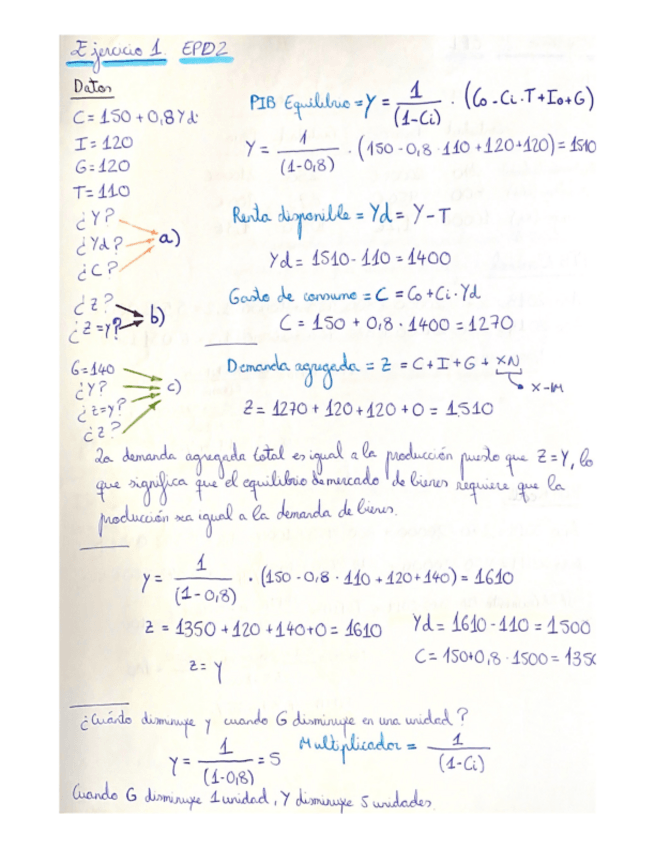 Ejercicio 1. EPD2
Datos
C = 150 + 0,8 Yd
I = 120
G = 120
T = 110
¿Y?
¿Yd? a)
¿C?
¿Z?
¿Z = Y? b)
G = 140
¿Y? c)
¿Z=Y?
¿Z?
PIB Equilibrio = Y = 1/(1-Ci) · (Co - Ci·T + Io + G)
Y = 1/(1-0,8) · (150 - 0,8·110 + 120 + 120) = 1510
Renta disponible = Yd = Y - T
Yd = 1510 - 110 = 1400
Gasto de consumo = C = Co + Ci·Yd
C = 150 + 0,8 · 1400 = 1270
Demanda agregada = Z = C + I + G + XN
X-M
Z = 1270 + 120 + 120 + 0 = 1510
La demanda agregada total es igual a la producción puesto que Z = Y, lo
que significa que el equilibrio de mercado de bienes requiere que la
producción sea igual a la demanda de bienes.
Y = 1/(1-0,8) · (150 - 0,8 · 110 + 120 + 140) = 1610
Z = 1350 + 120 + 140 + 0 = 1610 Yd = 1610 - 110 = 1500
Z = Y C = 150 + 0,8 · 1500 = 135
¿Cuánto disminuye Y cuando G disminuye en una unidad?
Y = 1/(1-0,8) = 5 Multiplicador = 1/(1-Ci)
Cuando G disminuye 1 unidad, Y disminuye 5 unidades.